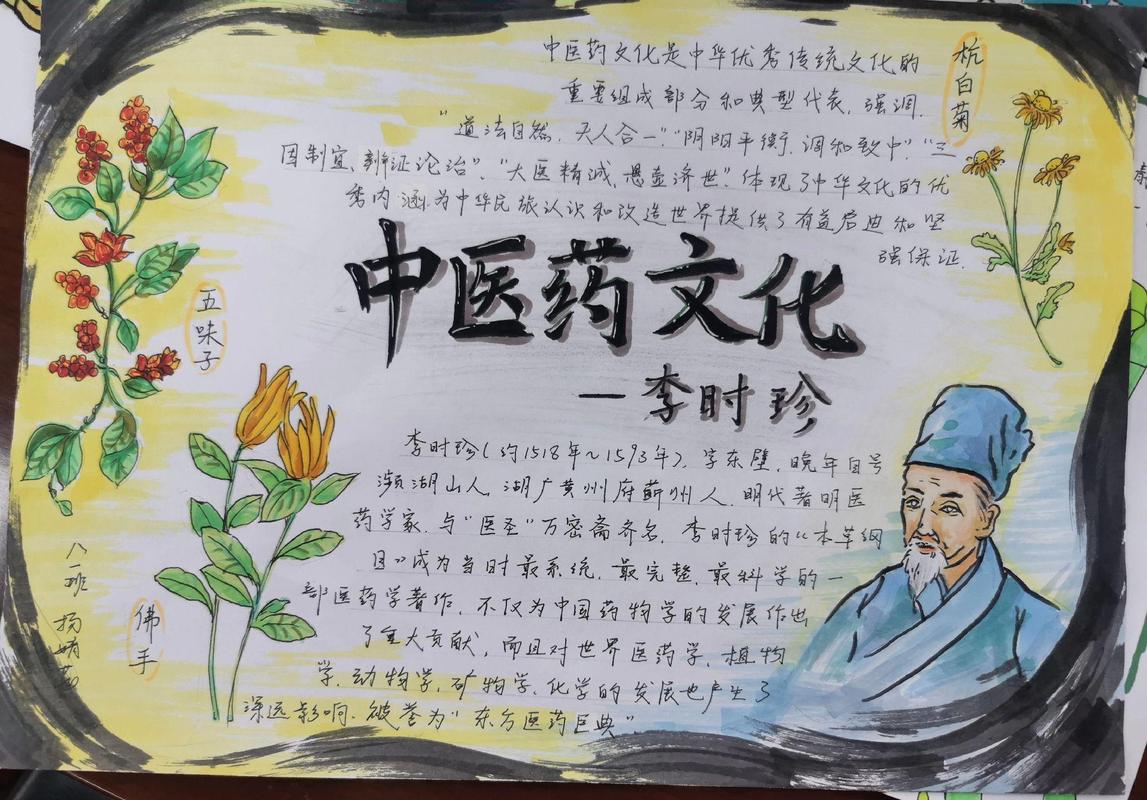 中医药文化是中华优秀传统文化的
重要组成部分和典型代表，强调
“道法自然，天人合一”“阴阳平衡，调和致中”“三
因制宜、辨证论治”、“大医精诚，悬壶济世”体现了中华文化的优
秀内涵，为中华民族认识和改造世界提供了有益启迪和坚
强保证。
杭白菊
中医药文化
—李时珍
五味子
李时珍（约1518年~1593年），字东壁，晚年自号
濒湖山人，湖广黄州府蕲州人，明代著明医
药学家，与“医圣”万密斋齐名，李时珍的《本草纲
目》成为当时最系统，最完整，最科学的一
部医药学著作，不仅为中国药物学的发展作出
了重大贡献，而且对世界医药学，植物
学，动物学，矿物学，化学的发展也产生了
深远影响。被誉为“东方医药巨典”
佛手
八一班 杨婧